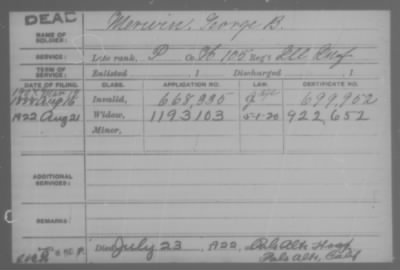 DEAD
NAME OF SOLDIER: Merwin, George B.
SERVICE: Late rank, P Co. H 105 Reg't Ill Inf
TERM OF SERVICE: Enlisted , 1 Discharged , 1
DATE OF FILING. CLASS. APPLICATION NO. LAW. CERTIFICATE NO.
1888 Aug 16 Invalid, 668,335 699,952
1922 Aug 21 Widow, 1193103 5-1-20 922,652
Minor,
ADDITIONAL SERVICES:
REMARKS:
Died July 23, 1922, Palo Alto Hosp
Palo Alto, Calif